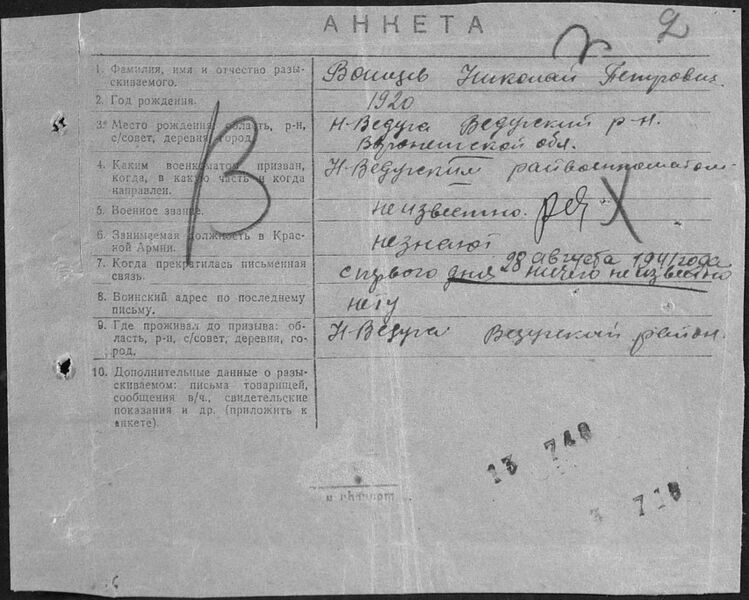 АНКЕТА
2
1. Фамилия, имя и отчество разы-
скиваемого.
Николай Петрович
2. Год рождения.
1920
3. Место рождения: область, р-н,
с/совет, деревня, город.
Н-Ведуга Ведугский р-н.
Воронежской обл.
4. Каким военкоматом призван,
когда, в какую часть и когда
направлен.
Н-Ведугским райвоенкоматом
5. Военное звание.
неизвестно. ряд
6. Занимаемая должность в Крас-
ной Армии.
незнают
7. Когда прекратилась письменная
связь.
28 августа 1941 года
с первого дня ничего неизвестно
8. Воинский адрес по последнему
письму.
нету
9. Где проживал до призыва: об-
ласть, р-н, с/совет, деревня, го-
род.
Н-Ведуга Ведугский район.
10. Дополнительные данные о разы-
скиваемом: письма товарищей,
сообщения в/ч., свидетельские
показания и др. (приложить к
анкете)
В
13 740